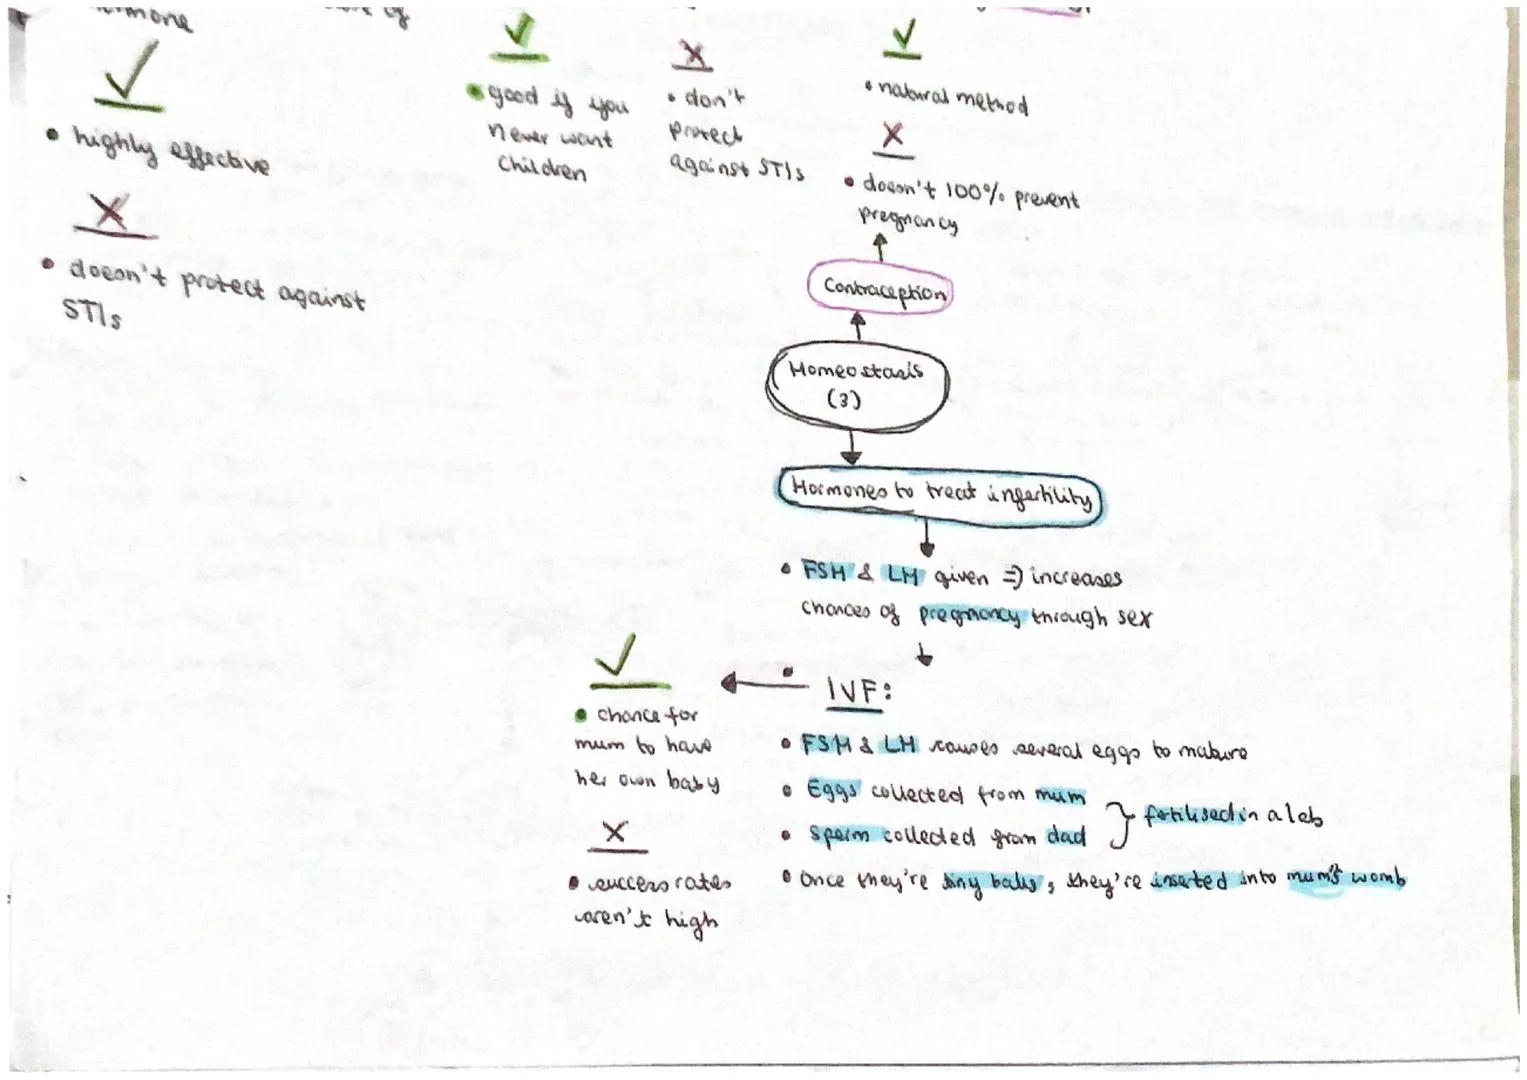 of
highly effective
doesn't protect against
STIs
good if you
never want
children
don't
protect
against STIs
natural method
doesn't 100% prevent
pregnancy
Contraception
Homeostasis
(3)
Hormones to treat infertility
FSH & LH given => increases
chances of pregnancy through sex
IVF:
FSH & LH causes several eggs to mature
Eggs collected from mum
Sperm collected from dad
fertilised in a lab
Once they're tiny balls, they're inserted into mum's womb
chance for
mum to have
her own baby
success rates
aren't high